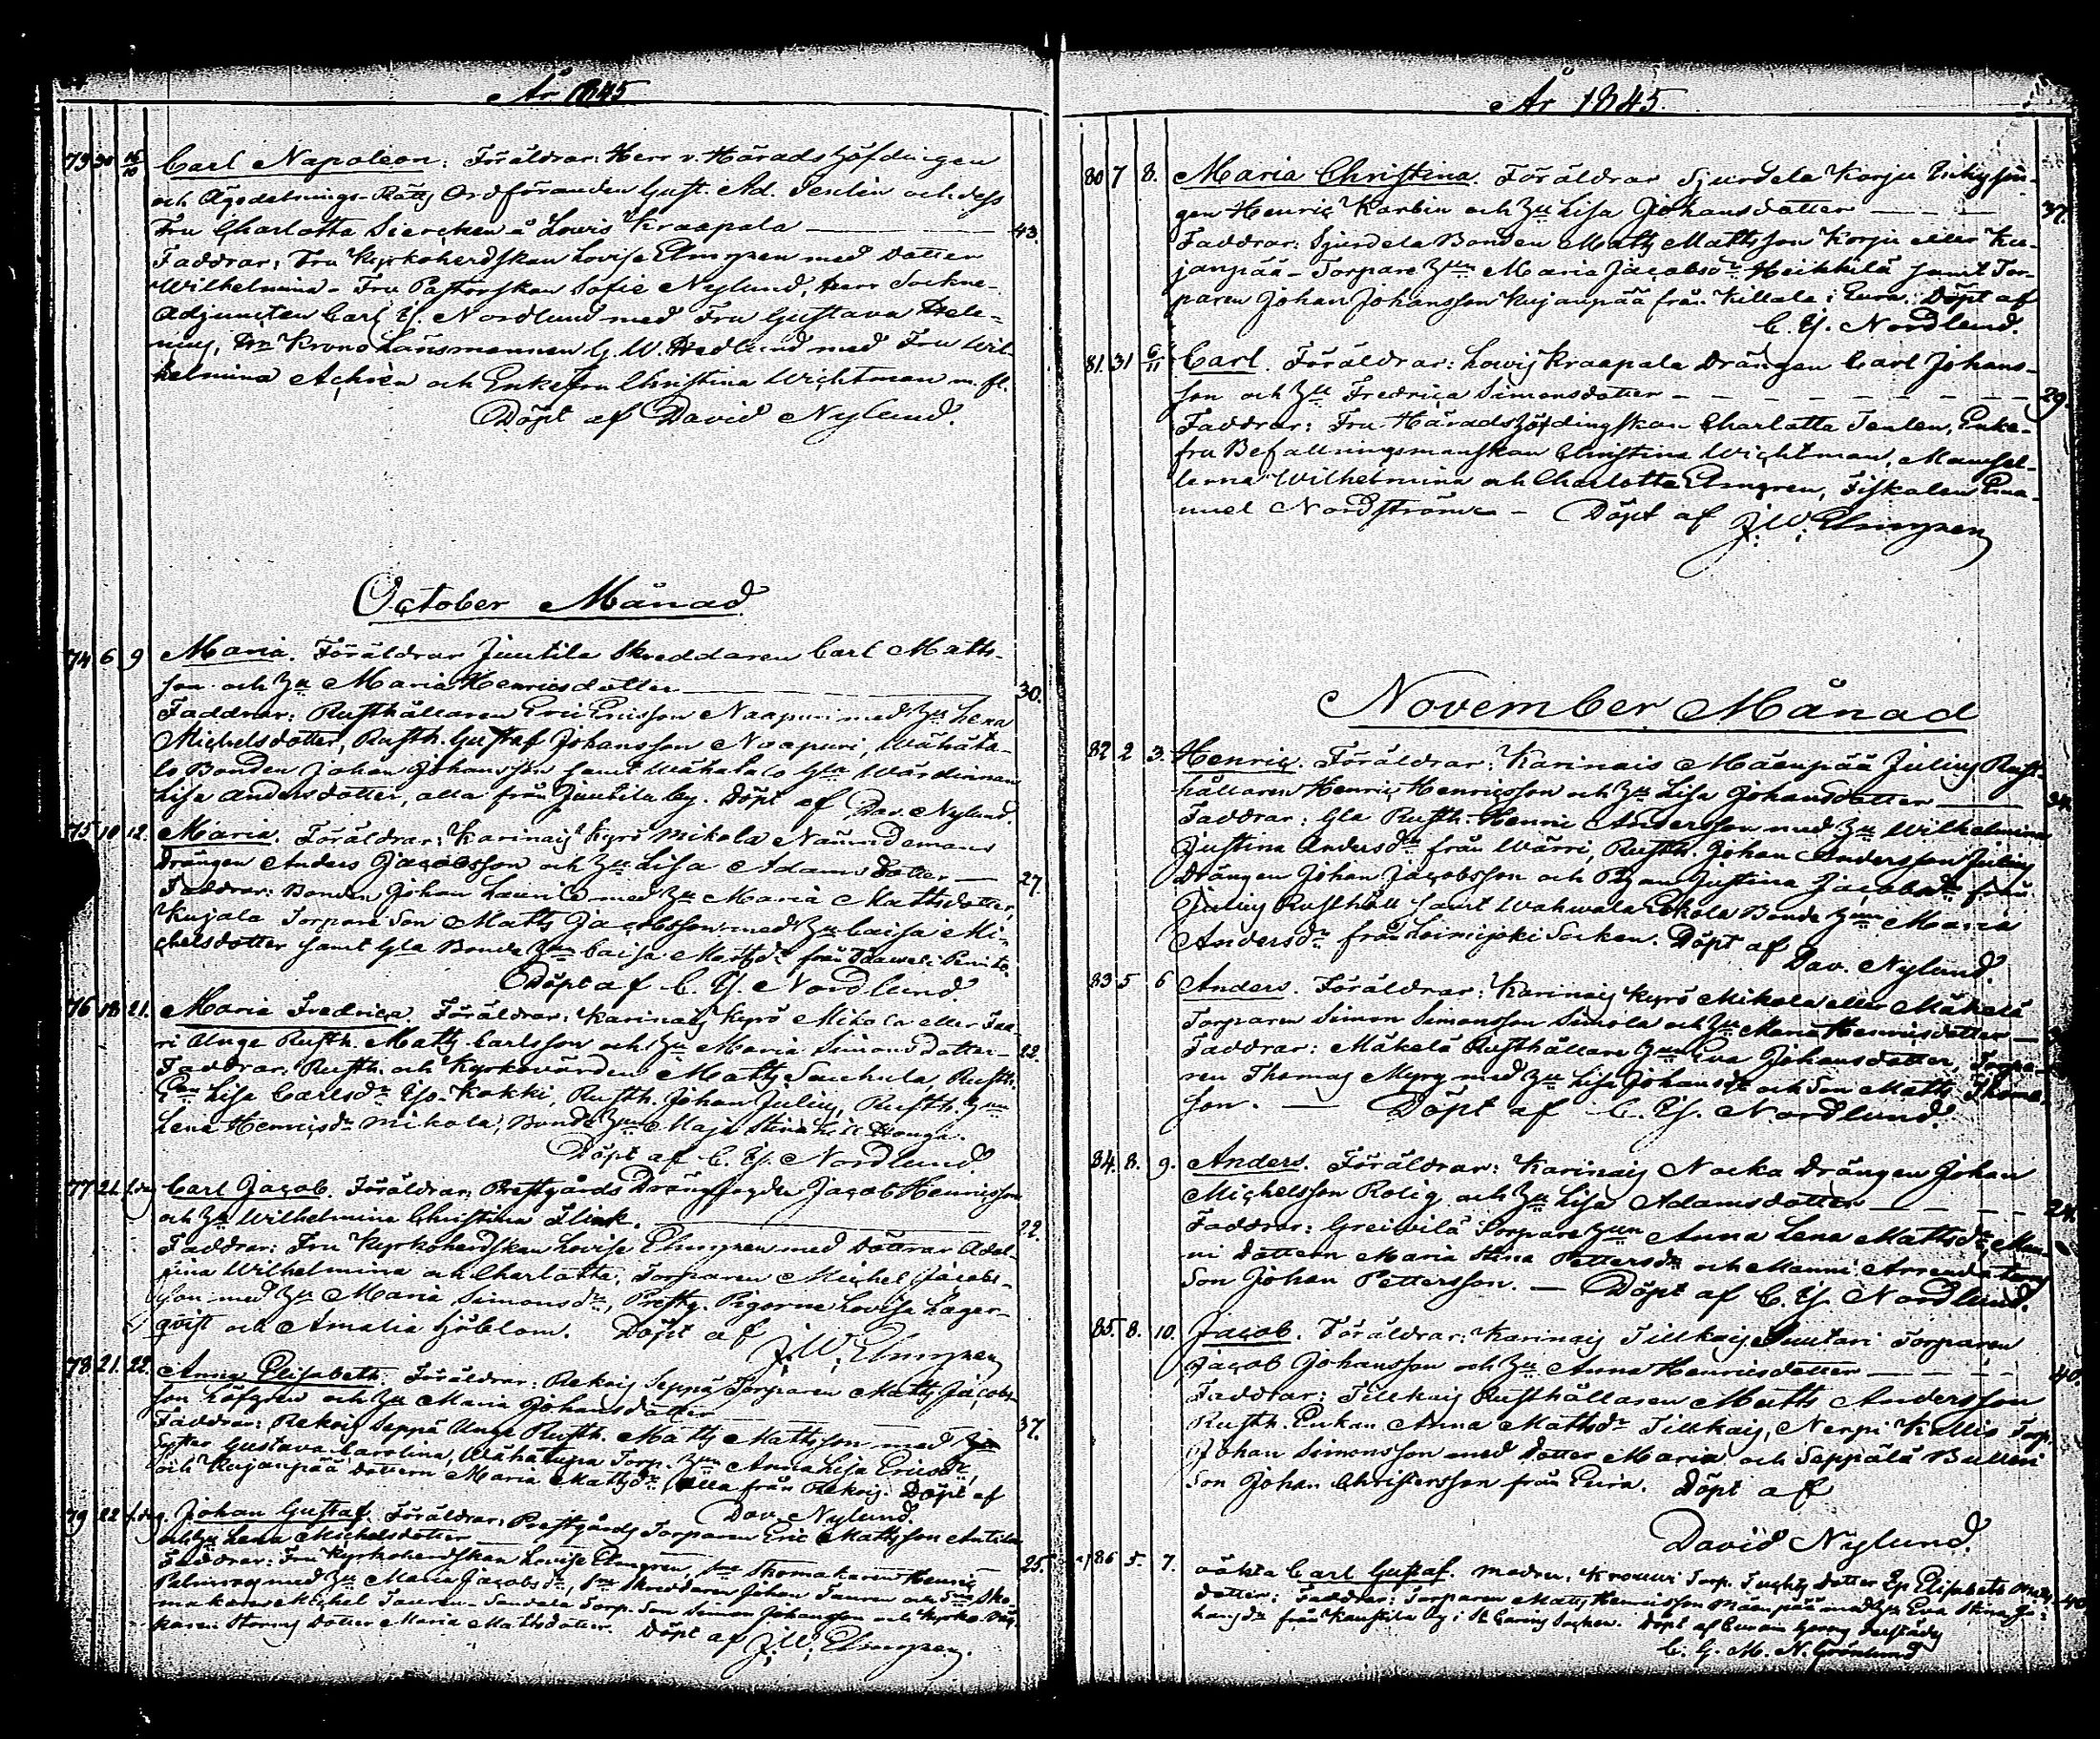 År 1845
73 30 16/10 Carl Napoleon. Föräldrar: Herr v. Häradshöfdingen
och Ägodelnings-Rätts Ordföranden Gust. Ad. Tenlén och dess
Fru Charlotta Siercken å Lowis Kraapala — 43.
Faddrar: Fru Kyrkoherdskan Lovisa Elmgren med dotter
Wilhelmina - Fru Pastorskan Sofie Nylund, Herr Sockne-
Adjuncten Carl Ej. Nordlund med Fru Gustava Hele-
nius, Krono Länsmannen G. W. Hedlund med Fru Wil-
helmina Achrén och Enkefru Christina Wichtman m. fl.
Döpt af David Nylund.
October Månad
74 6 9 Maria. Föräldrar Juutila Skreddaren Carl Matts-
son och Hu Maria Henricsdotter — 30.
Faddrar: Rusthållaren Eric Ericsson Naapuri med Hu Lena
Michelsdotter, Rusth. Gustaf Johansson Naapuri, Wähäta-
lo Bonden Johan Johansson samt Wähätalo Gla Wärdinnan
Lisa Andersdotter, alla från Juutila by. Döpt af Dav. Nylund.
75 10 12. Maria. Föräldrar: Karinais Kyrö Mikola Nämndemans
Drängen Anders Jacobsson och Hu Lisa Adamsdotter — 27.
Faddrar: Bonden Johan Launio med Hu Maria Mattsdotter,
Kujala Torpare Son Matts Jacobsson med Hu Caisa Mi-
chelsdotter samt Gla Bonde Hun Caisa Mattsdr från
Döpt af C. Ej. Nordlund.
76 18 21. Maria Fredrica. Föräldrar: Karinais Kyrö Mikola eller
Unge Rusth. Matts Carlsson och Hu Maria Simonsdotter — 22.
Faddrar: Rusth. och Kyrkovärden Matts Sauhula, Rusth.
Lisa Carlsdr Yso-Kokki, Rusth. Johan Julius, Rusth. Hun
Lena Henricsdr Mikola, Bonde Hun Maja Stina
Döpt af C. Ej. Nordlund.
77 21. s.dag Carl Jacob. Föräldrar: Prestgårds Drängfogden Jacob Henricsson
och Hu Wilhelmina Christina Flink. — 22.
Faddrar: Fru Kyrkoherdskan Lovisa Elmgren med Döttrar
Wilhelmina och Charlotta, Torparen Michel Jacobs-
son med Hu Maria Simonsdr, Prestg. Pigorna Lovisa Lager-
qvist och Amalia Sjöblom. Döpt af
J. W. Elmgren
78 21. 22. Anna Elisabeth. Föräldrar: Rekois Seppä Torparen Matts Jacobs-
son Löfgren och Hu Maria Johansdotter — 37.
Faddrar: Rekois Seppä Unge Rusth. Matts Mattsson med
Syster Gustava Carolina, Wähätupa Torp. Hun Anna Lisa Ericsdr,
och Kujanpää dottern Maria Mattsdr, alla från Rekois. Döpt af
Dav. Nylund.
79 22 s.dag. Johan Gustaf. Föräldrar: Prestgårds Torparen Eric Mattsson Antila
och Hu Lena Michelsdotter — 25.
Faddrar: Fru Kyrkoherdskan Lovise Elmgren, Skomakaren Henric
Palmroos med Hu Maria Jacobsdr, Skreddaren Johan Tauren och Sko-
makaren Michel Tauren - Sandala Torp. Son Simon Johansson och Kyrko-
Storms Dotter Maria Mattsdotter. Döpt af J. W. Elmgren.
År 1845.
80 7 8. Maria Christina. Föräldrar Sjurdela Korju
Henric Karbin och Hu Lisa Johansdotter — 37.
Faddrar: Sjurdela Bonden Matts Mattsson Korju eller Ku-
janpää - Torpare Hun Maria Jacobsdr Heikkilä samt Tor-
paren Johan Johansson Kujanpää från Killala i Eura. Döpt af
C. Ej. Nordlund.
81. 31 6/11 Carl. Föräldrar: Lowis Kraapala Drängen Carl Johans-
son och Hu Fredrica Simonsdotter — 29.
Faddrar: Fru Häradshöfdingskan Charlotta Tenlen, Enke-
fru Befallningsmanskan Christina Wichtman, Mamsel-
lerna Wilhelmina och Charlotta Elmgren, Fiskalen Ema-
nuel Nordström - Döpt af J. W. Elmgren
November Månad
82 2 3. Henric. Föräldrar: Karinais Mäenpää Julius Rust-
hållaren Henric Henricsson och Hu Lisa Johansdotter — 34.
Faddrar: Gla Rusth. Henric Andersson med Hu Wilhelmina
Justina Andersdr från Wärri, Rusth. Johan Andersson Julius
Drängen Johan Jacobsson och Pigan Justina Jacobsdr från
Julius Rusthåll samt Wahwala Eskola Bonde Hun Maria
Andersdr från Loimijoki Socken. Döpt af
Dav. Nylund
83 5 6 Anders. Föräldrar: Karinais Kyrö Mikola eller Mäkelä
Torparen Simon Simonsson Simola och Hu Maria Henricsdotter —
Faddrar: Mäkelä Rusthållare Hun Eva Johansdotter, Torpa-
ren Thomas Myry med Hu Lisa Johansdr och Son Matts Thoma-
son. — Döpt af C. Ej. Nordlund.
84. 8. 9. Anders. Föräldrar: Karinais Nocka Drängen Johan
Michelsson Rolig och Hu Lisa Adamsdotter — 24.
Faddrar: Greivilä Torpare Hun Anna Lena Mattsdr, Man-
ni Dottern Maria Stina Pettersdr och Manni Arrendators
Son Johan Pettersson. — Döpt af C. Ej. Nordlund.
85. 8. 10. Jacob. Föräldrar: Karinais Tillkais Suutari Torparen
Jacob Johansson och Hu Anna Henricsdotter — 40.
Faddrar: Tillkais Rusthållaren Matts Andersson
Rusth. Enkan Anna Mattsdr Tillkais, Nerpi Kallio Torp.
Johan Simonsson med dotter Maria och Seppälä Bullen
Son Johan Christersson från Eura. Döpt af
David Nylund.
86 5. 7. oäkta Carl Gustaf. Modren: Krouwi Torp. Dotter Elisabeth Matts-
dotter. Faddrar: Torparen Matts Henricsson Mäenpää med Hu Eva Stina Jo- 40
hansdr från by i St Carins Socken. Döpt af
C. G. M. N. Grönlund